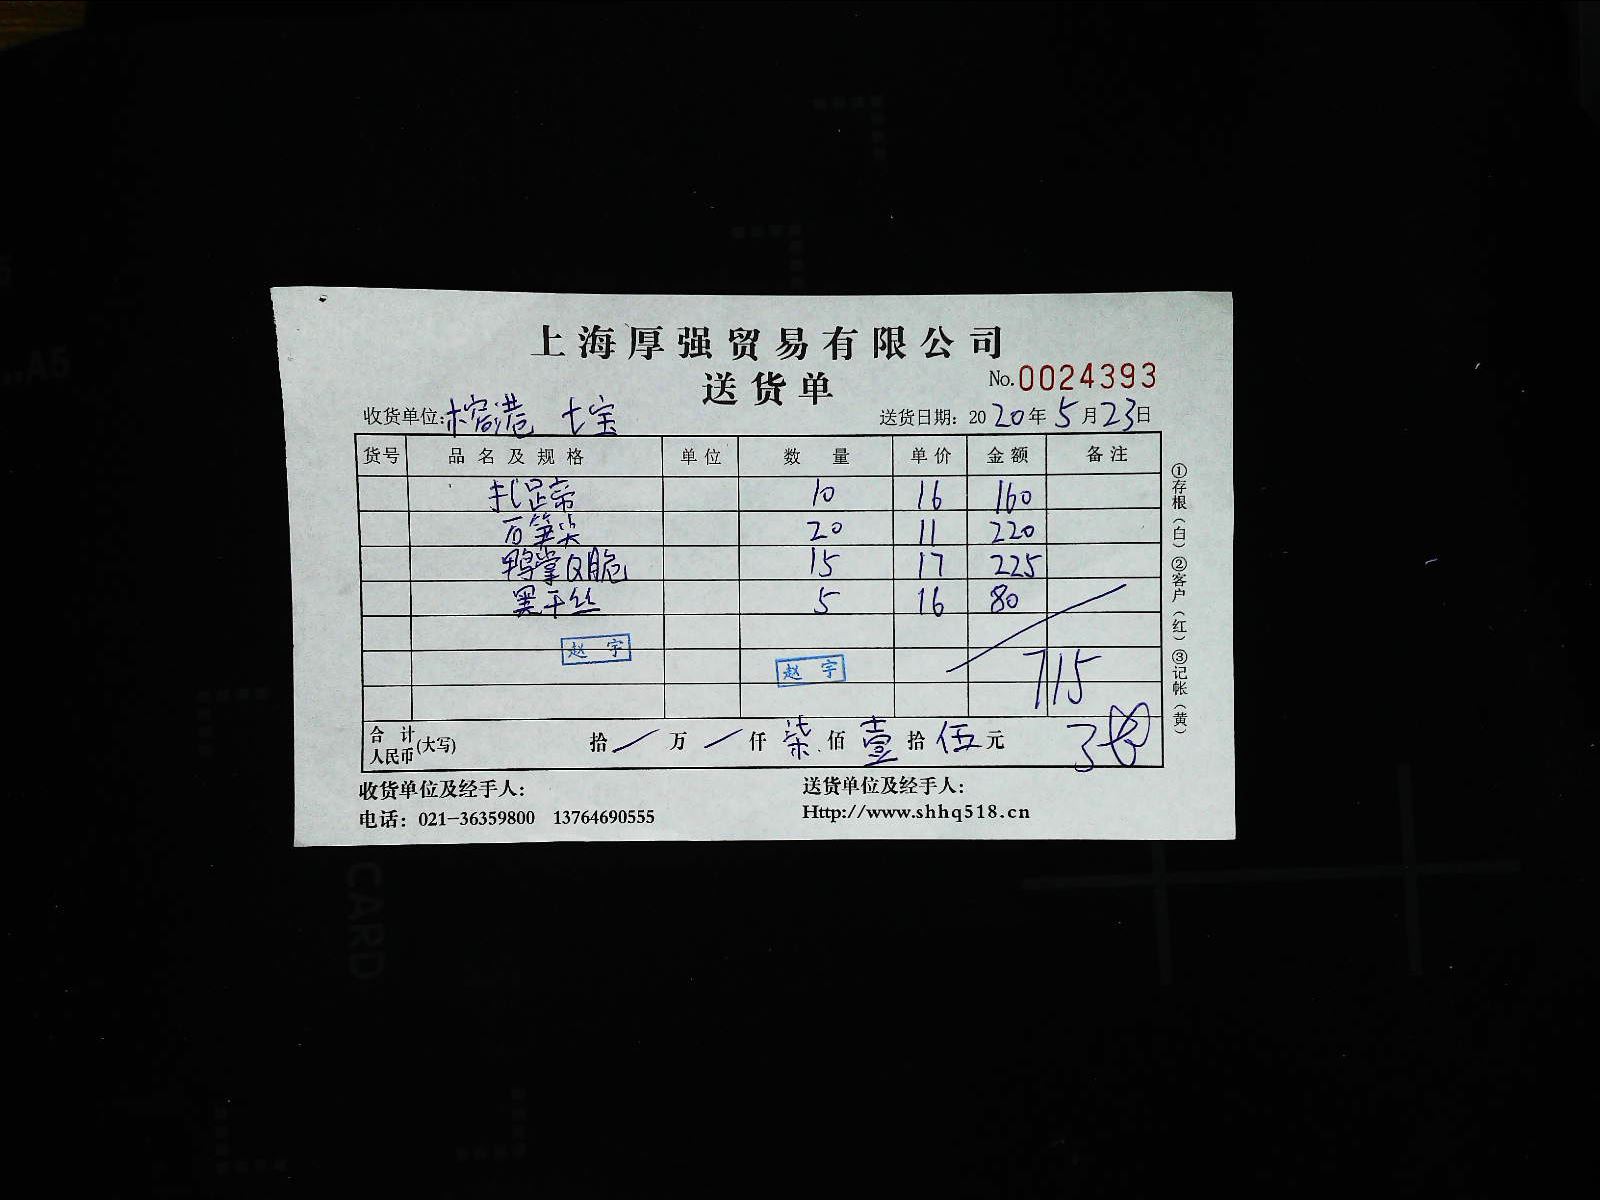 上海厚强贸易有限公司
送货单
No.0024393
收货单位:榕港 七宝
送货日期: 2020年5月23日
货号 品名及规格 单位 数量 单价 金额 备注
扎足帝 10 16 160
万笋尖 20 11 220
鸭掌皮脆 15 17 225
黑干丝 5 16 80
赵宇
赵宇
715
合计人民币(大写) 拾/万/仟柒佰壹拾伍元
收货单位及经手人:
送货单位及经手人:
电话: 021-36359800 13764690555
Http://www.shhq518.cn
①存根(白)②客户(红)③记帐(黄)
A5
CARD